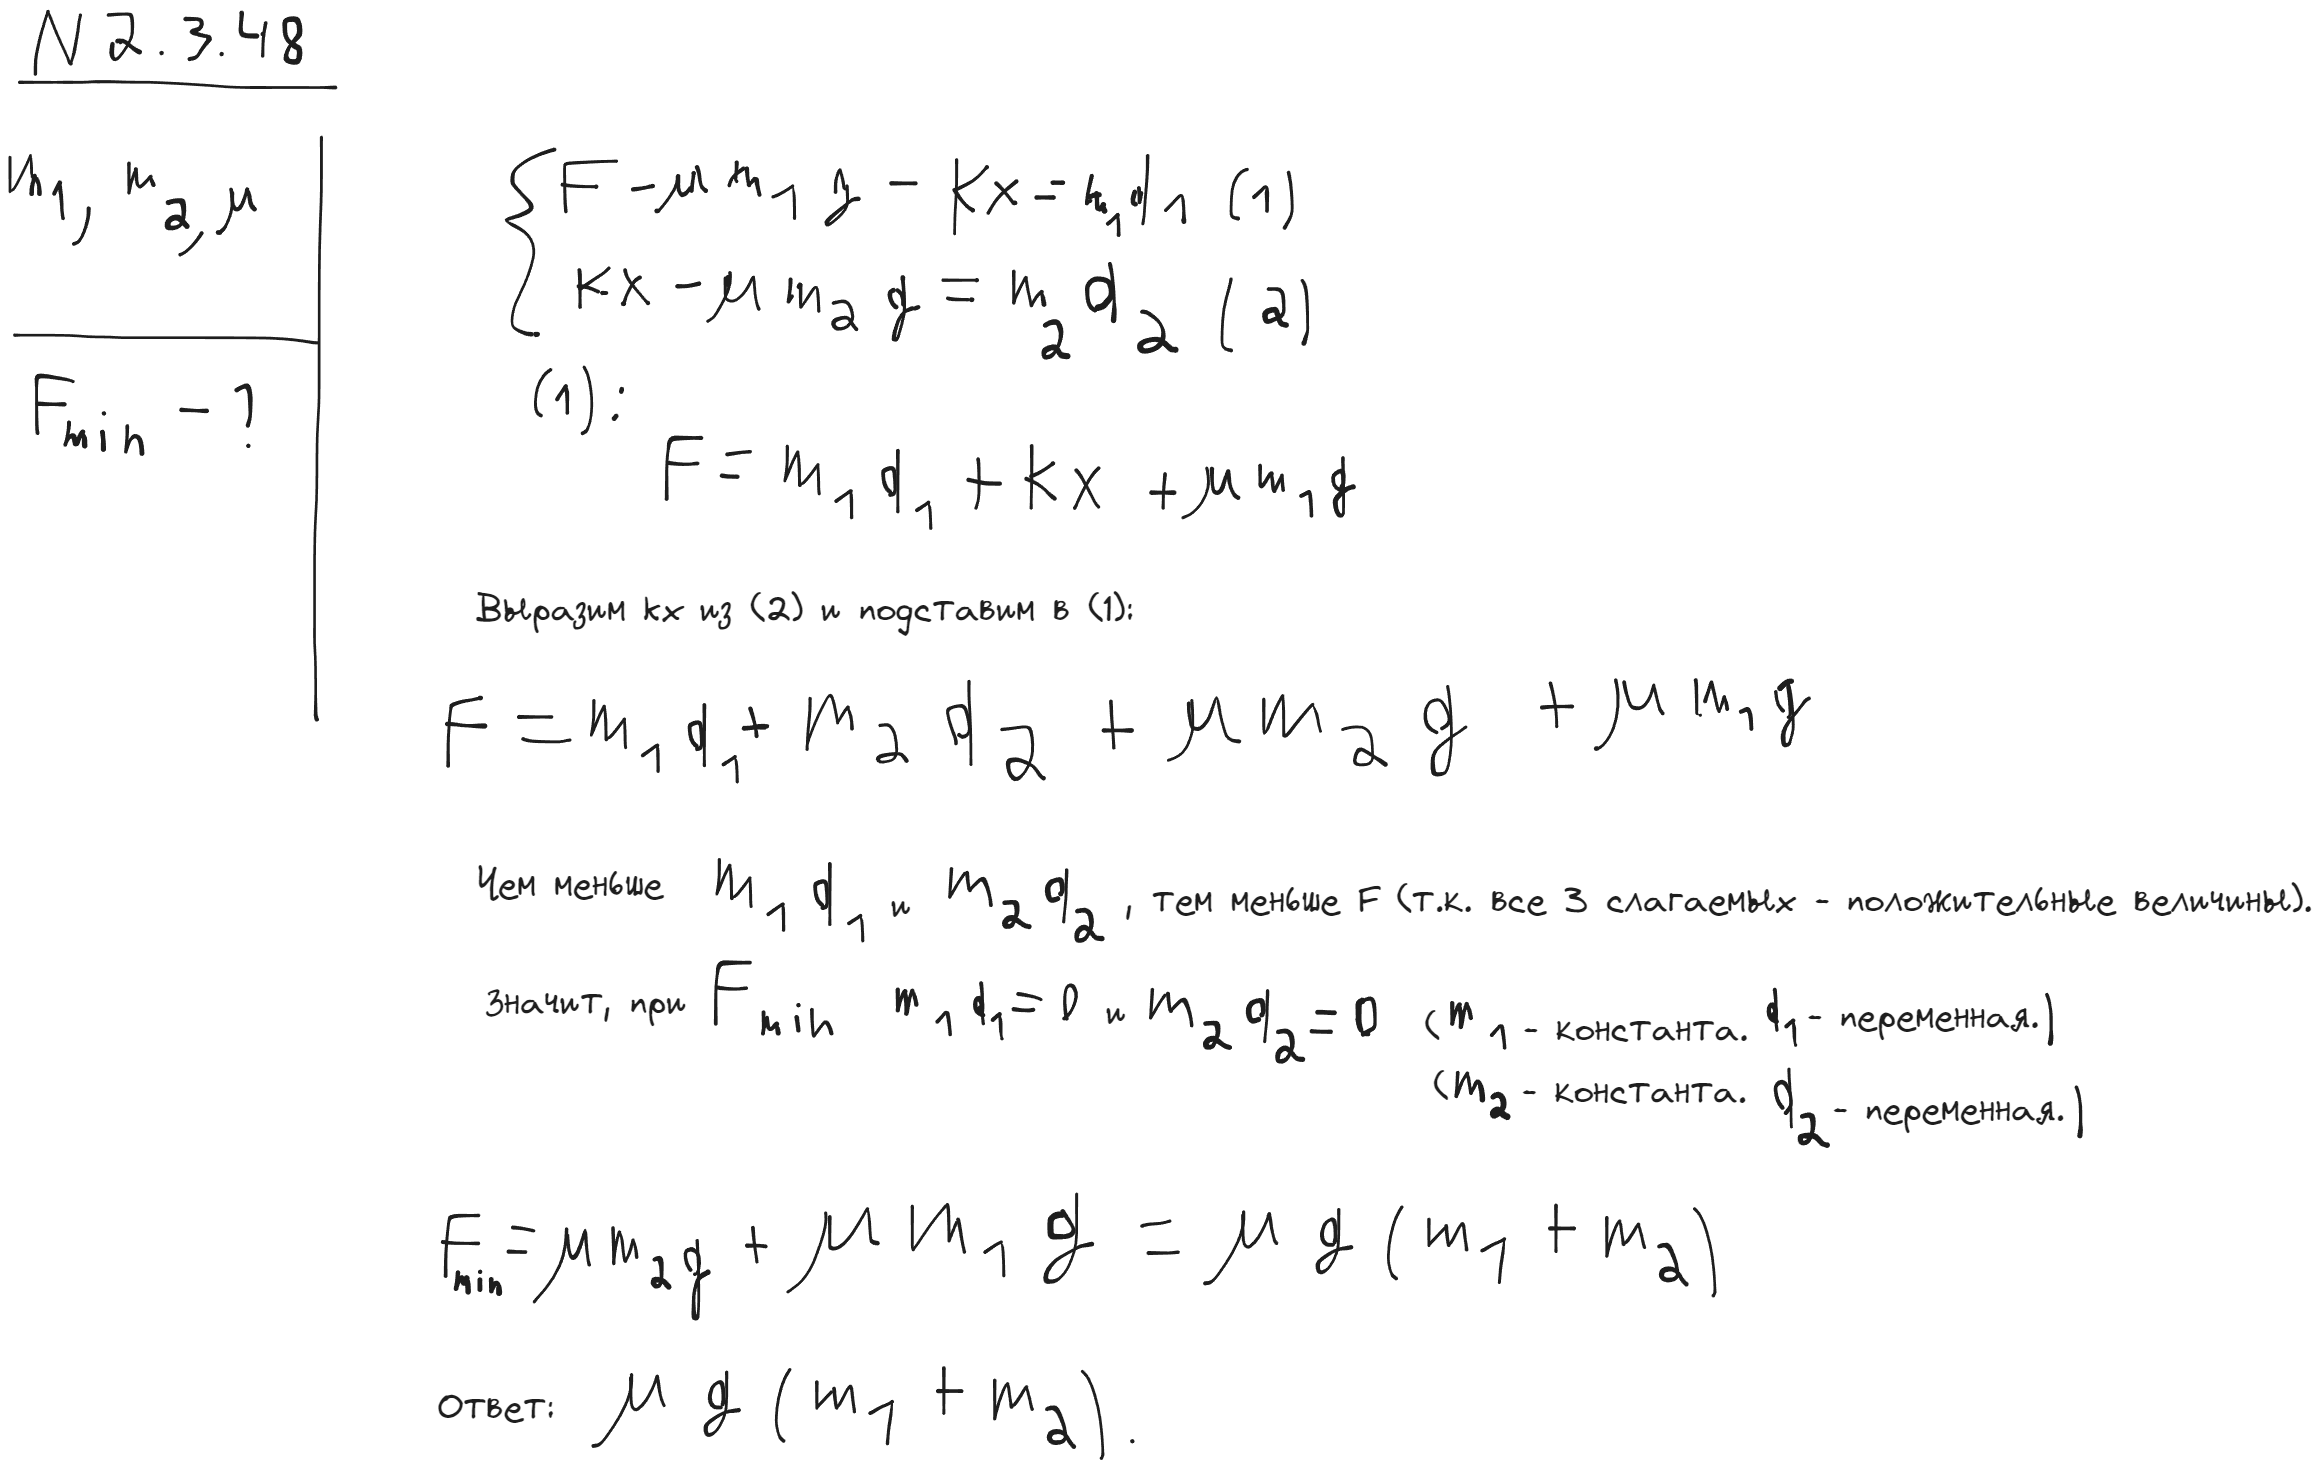 N 2.3.48
m₁, m₂, μ
Fmin - ?
F - μ m₁ g - kx = m₁a₁ (1)
kx - μ m₂ g = m₂ a₂ (2)
(1):
F = m₁ a₁ + kx + μ m₁ g
Выразим kx из (2) и подставим в (1):
F = m₁ a₁ + m₂ a₂ + μ m₂ g + μ m₁ g
Чем меньше m₁ a₁ и m₂ a₂, тем меньше F (т.к. все 3 слагаемых - положительные величины).
Значит, при Fmin m₁ a₁ = 0 и m₂ a₂ = 0 (m₁ - константа. a₁ - переменная.)
(m₂ - константа. a₂ - переменная.)
Fmin = μ m₂ g + μ m₁ g = μ g (m₁ + m₂)
Ответ: μ g (m₁ + m₂).